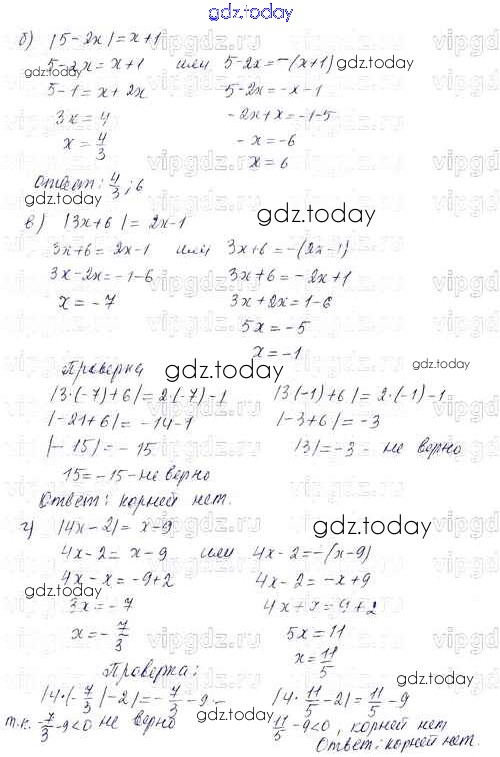 gdz.today
б) |5-2x|=x+1
5-2x=x+1 или 5-2x=-(x+1)
5-1=x+2x 5-2x=-x-1
3x=4 -2x+x=-1-5
x=4/3 -x=-6
x=6
Ответ: 4/3; 6
в) |3x+6|=2x-1
3x+6=2x-1 или 3x+6=-(2x-1)
3x-2x=-1-6 3x+6=-2x+1
x=-7 3x+2x=1-6
5x=-5
x=-1
Проверка
|3·(-7)+6|=2·(-7)-1 |3(-1)+6|=2·(-1)-1
|-21+6|=-14-1 |-3+6|=-3
|-15|=-15 |3|=-3 - не верно
15=-15-не верно
Ответ: корней нет.
г) |4x-2|=x-9
4x-2=x-9 или 4x-2=-(x-9)
4x-x=-9+2 4x-2=-x+9
3x=-7 4x+x=9+2
x=-7/3 5x=11
x=11/5
Проверка:
|4·(-7/3)-2|=-7/3-9 - |4·11/5-2|=11/5-9
т.к. -7/3-9<0 не верно 11/5-9<0, корней нет
Ответ: корней нет.
gdz.today
gdz.today
gdz.today
gdz.today
gdz.today
gdz.today
gdz.today
gdz.today
gdz.today
gdz.today
vipgdz.ru